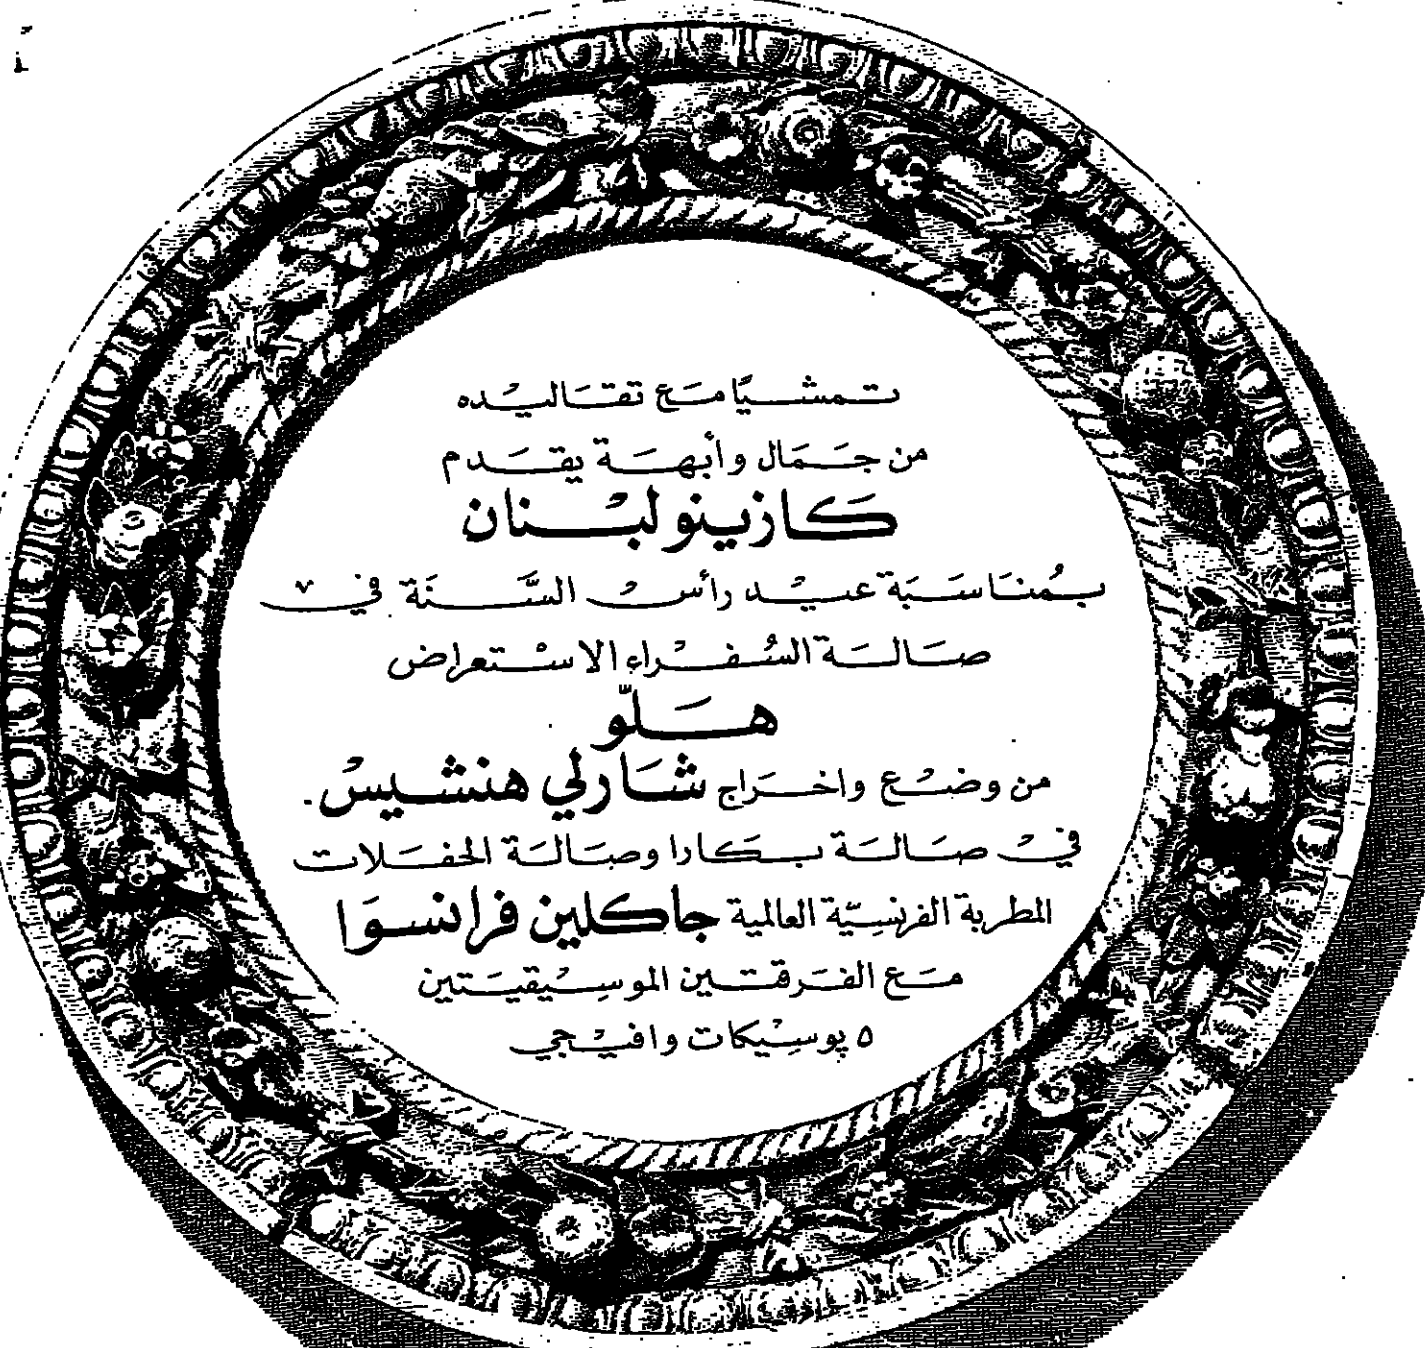 تمشيًا مع تقاليده
من جمال وأبهة يقدم
كازينو لبنان
بمُناسَبَة عيد رأس السَّنَة في
صَالَة السُفراء الاستعراض
هَلّو
من وضع واخراج شَارلي هنشيس.
في صَالَة بكارا وصَالَة الحفَلات
المطربة الفرنسيّة العالمية جاكلين فرانسوَا
مَع الفَرقتين الموسِيقيَتين
٥ پوسِيكات وافيجي